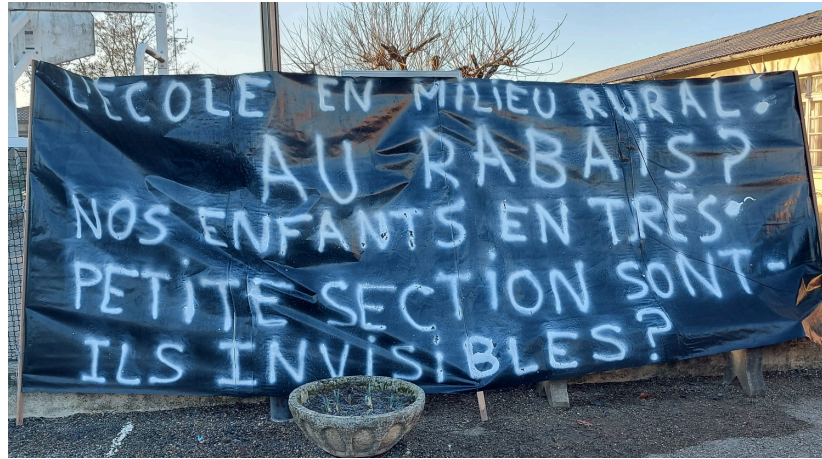 L'ECOLE EN MILIEU RURAL:
AU RABAIS?
NOS ENFANTS EN TRÈS
PETITE SECTION SONT-
ILS INVISIBLES?